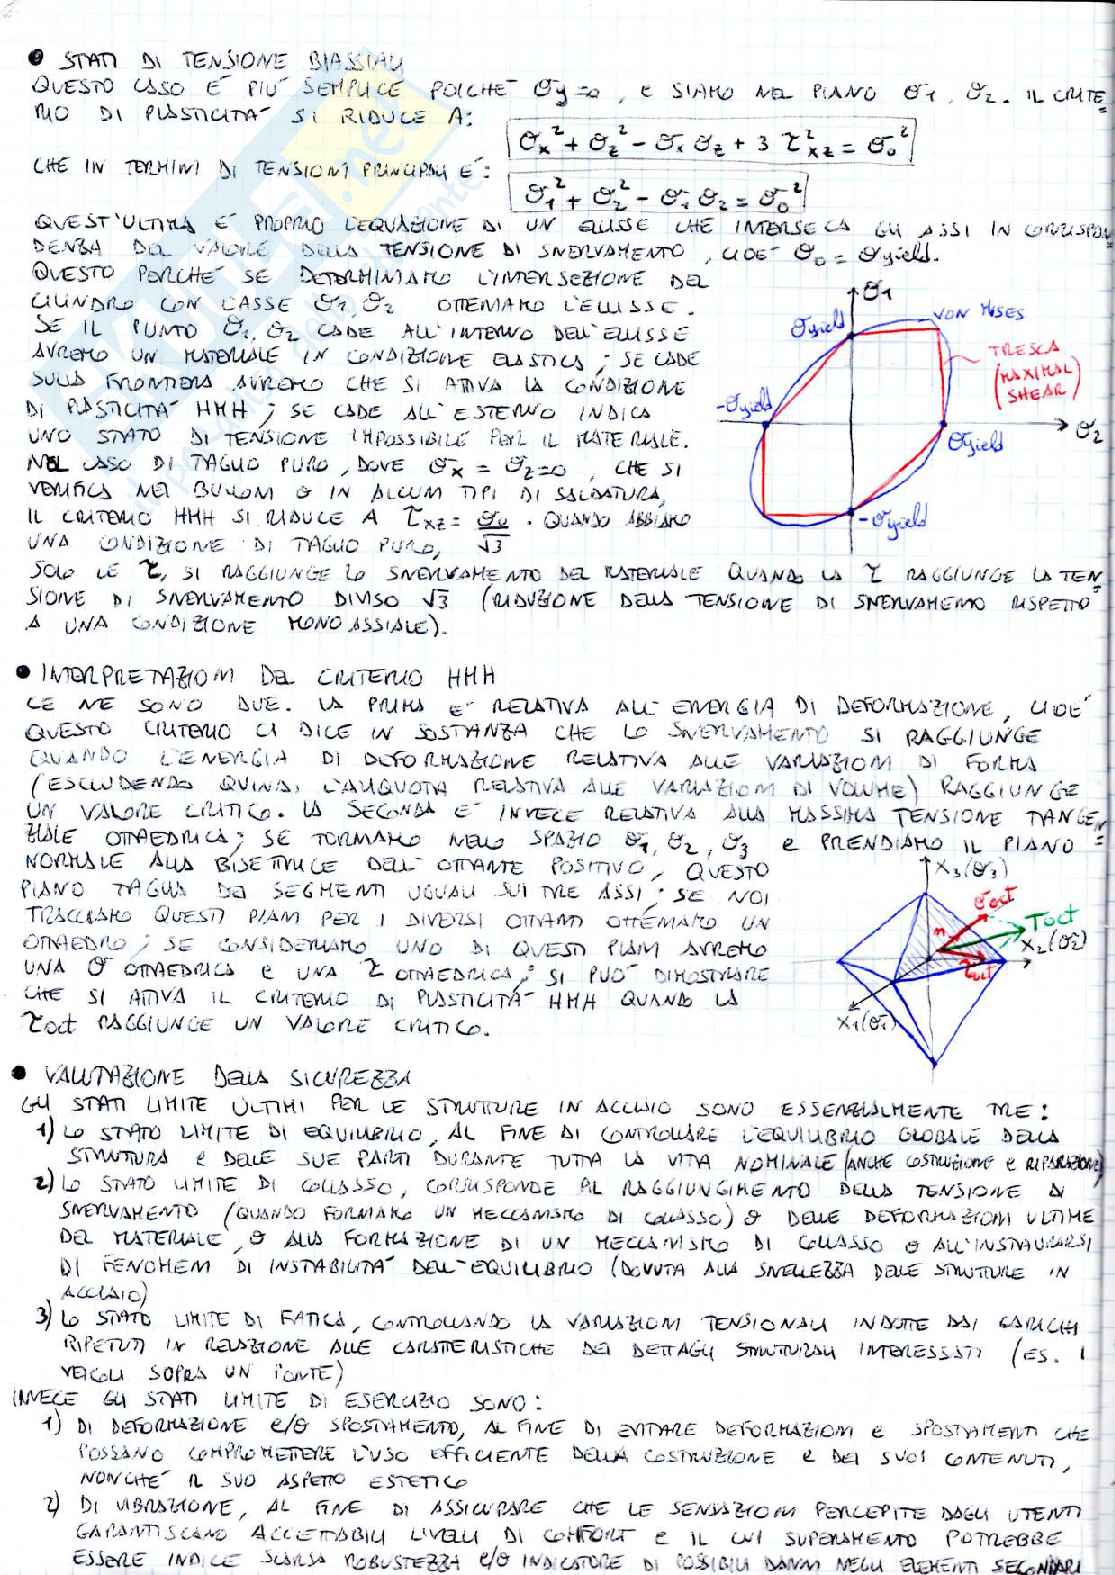 ● STATI DI TENSIONE BIASSIALI
QUESTO CASO E' PIU' SEMPLICE POICHE' σy=0, E SIAMO NEL PIANO σ1, σ2. IL CRITE=
RIO DI PLASTICITA' SI RIDUCE A:
σx² + σz² - σx σz + 3 τxz² = σ0²
CHE IN TERMINI DI TENSIONI PRINCIPALI E':
σ1² + σ2² - σ1 σ2 = σ0²
QUEST'ULTIMA E' PROPRIO L'EQUAZIONE DI UN ELLISSE CHE INTERSECA GLI ASSI IN CORRISPON
DENZA DEL VALORE DELLA TENSIONE DI SNERVAMENTO, CIOE' σ0 = σyield.
QUESTO PERCHE' SE DETERMINIAMO L'INTERSEZIONE DEL
CILINDRO CON L'ASSE σ1, σ2 OTTENIAMO L'ELLISSE.
SE IL PUNTO σ1, σ2 CADE ALL'INTERNO DELL'ELLISSE
AVREMO UN MATERIALE IN CONDIZIONE ELASTICA; SE CADE
SULLA FRONTIERA AVREMO CHE SI ATTIVA LA CONDIZIONE
DI PLASTICITA' HMH; SE CADE ALL'ESTERNO INDICA
UNO STATO DI TENSIONE IMPOSSIBILE PER IL MATERIALE.
NEL CASO DI TAGLIO PURO, DOVE σx = σz=0, CHE SI
VERIFICA NEI BULLONI O IN ALCUNI TIPI DI SALDATURA,
IL CRITERIO HMH SI RIDUCE A τxz = σ0/√3. QUANDO ABBIAMO
UNA CONDIZIONE DI TAGLIO PURO,
SOLO LE τ, SI RAGGIUNGE LO SNERVAMENTO DEL MATERIALE QUANDO LA τ RAGGIUNGE LA TEN
SIONE DI SNERVAMENTO DIVISO √3 (RIDUZIONE DELLA TENSIONE DI SNERVAMENTO RISPETTO
A UNA CONDIZIONE MONOASSIALE).
σ1
σyield
VON MISES
TRESCA
(MAXIMAL
SHEAR)
-σyield
σ2
σyield
-σyield
● INTERPRETAZIONI DEL CRITERIO HMH
CE NE SONO DUE. LA PRIMA E' RELATIVA ALL'ENERGIA DI DEFORMAZIONE, CIOE'
QUESTO CRITERIO CI DICE IN SOSTANZA CHE LO SNERVAMENTO SI RAGGIUNGE
QUANDO L'ENERGIA DI DEFORMAZIONE RELATIVA ALLE VARIAZIONI DI FORMA
(ESCLUDENDO QUINDI L'ALIQUOTA RELATIVA ALLE VARIAZIONI DI VOLUME) RAGGIUNGE
UN VALORE CRITICO. LA SECONDA E' INVECE RELATIVA ALLA MASSIMA TENSIONE TANGEN=
ZIALE OTTAEDRICA; SE TORNIAMO NELLO SPAZIO σ1, σ2, σ3 E PRENDIAMO IL PIANO
NORMALE ALLA BISETTRICE DELL'OTTANTE POSITIVO, QUESTO
PIANO TAGLIA DEI SEGMENTI UGUALI SUI TRE ASSI; SE NOI
TRACCIAMO QUESTI PIANI PER I DIVERSI OTTANTI OTTENIAMO UN
OTTAEDRO; SE CONSIDERIAMO UNO DI QUESTI PIANI AVREMO
UNA σ OTTAEDRICA E UNA τ OTTAEDRICA; SI PUO' DIMOSTRARE
CHE SI ATTIVA IL CRITERIO DI PLASTICITA' HMH QUANDO LA
τoct RAGGIUNGE UN VALORE CRITICO.
X3(σ3)
σoct
Toct
n
X2(σ2)
τoct
X1(σ1)
● VALUTAZIONE DELLA SICUREZZA
GLI STATI LIMITE ULTIMI PER LE STRUTTURE IN ACCIAIO SONO ESSENZIALMENTE TRE:
1) LO STATO LIMITE DI EQUILIBRIO, AL FINE DI CONTROLLARE L'EQUILIBRIO GLOBALE DELLA
STRUTTURA E DELLE SUE PARTI DURANTE TUTTA LA VITA NOMINALE (ANCHE COSTRUZIONE E RIPARAZIONE)
2) LO STATO LIMITE DI COLLASSO, CORRISPONDE AL RAGGIUNGIMENTO DELLA TENSIONE DI
SNERVAMENTO (QUANDO FORMIAMO UN MECCANISMO DI COLLASSO) O DELLE DEFORMAZIONI ULTIME
DEL MATERIALE, O ALLA FORMAZIONE DI UN MECCANISMO DI COLLASSO O ALL'INSTAURARSI
DI FENOMENI DI INSTABILITA' DELL'EQUILIBRIO (DOVUTA ALLA SNELLEZZA DELLE STRUTTURE IN
ACCIAIO)
3) LO STATO LIMITE DI FATICA, CONTROLLANDO LE VARIAZIONI TENSIONALI INDOTTE DAI CARICHI
RIPETUTI IN RELAZIONE ALLE CARATTERISTICHE DEI DETTAGLI STRUTTURALI INTERESSATI (ES. I
VEICOLI SOPRA UN PONTE)
INVECE GLI STATI LIMITE DI ESERCIZIO SONO:
1) DI DEFORMAZIONE E/O SPOSTAMENTO, AL FINE DI EVITARE DEFORMAZIONI E SPOSTAMENTI CHE
POSSANO COMPROMETTERE L'USO EFFICIENTE DELLA COSTRUZIONE E DEI SUOI CONTENUTI,
NONCHE' IL SUO ASPETTO ESTETICO
2) DI VIBRAZIONE, AL FINE DI ASSICURARE CHE LE SENSAZIONI PERCEPITE DAGLI UTENTI
GARANTISCANO ACCETTABILI LIVELLI DI COMFORT E IL CUI SUPERAMENTO POTREBBE
ESSERE INDICE SCARSA ROBUSTEZZA E/O INDICATORE DI POSSIBILI DANNI NEGLI ELEMENTI SECONDARI